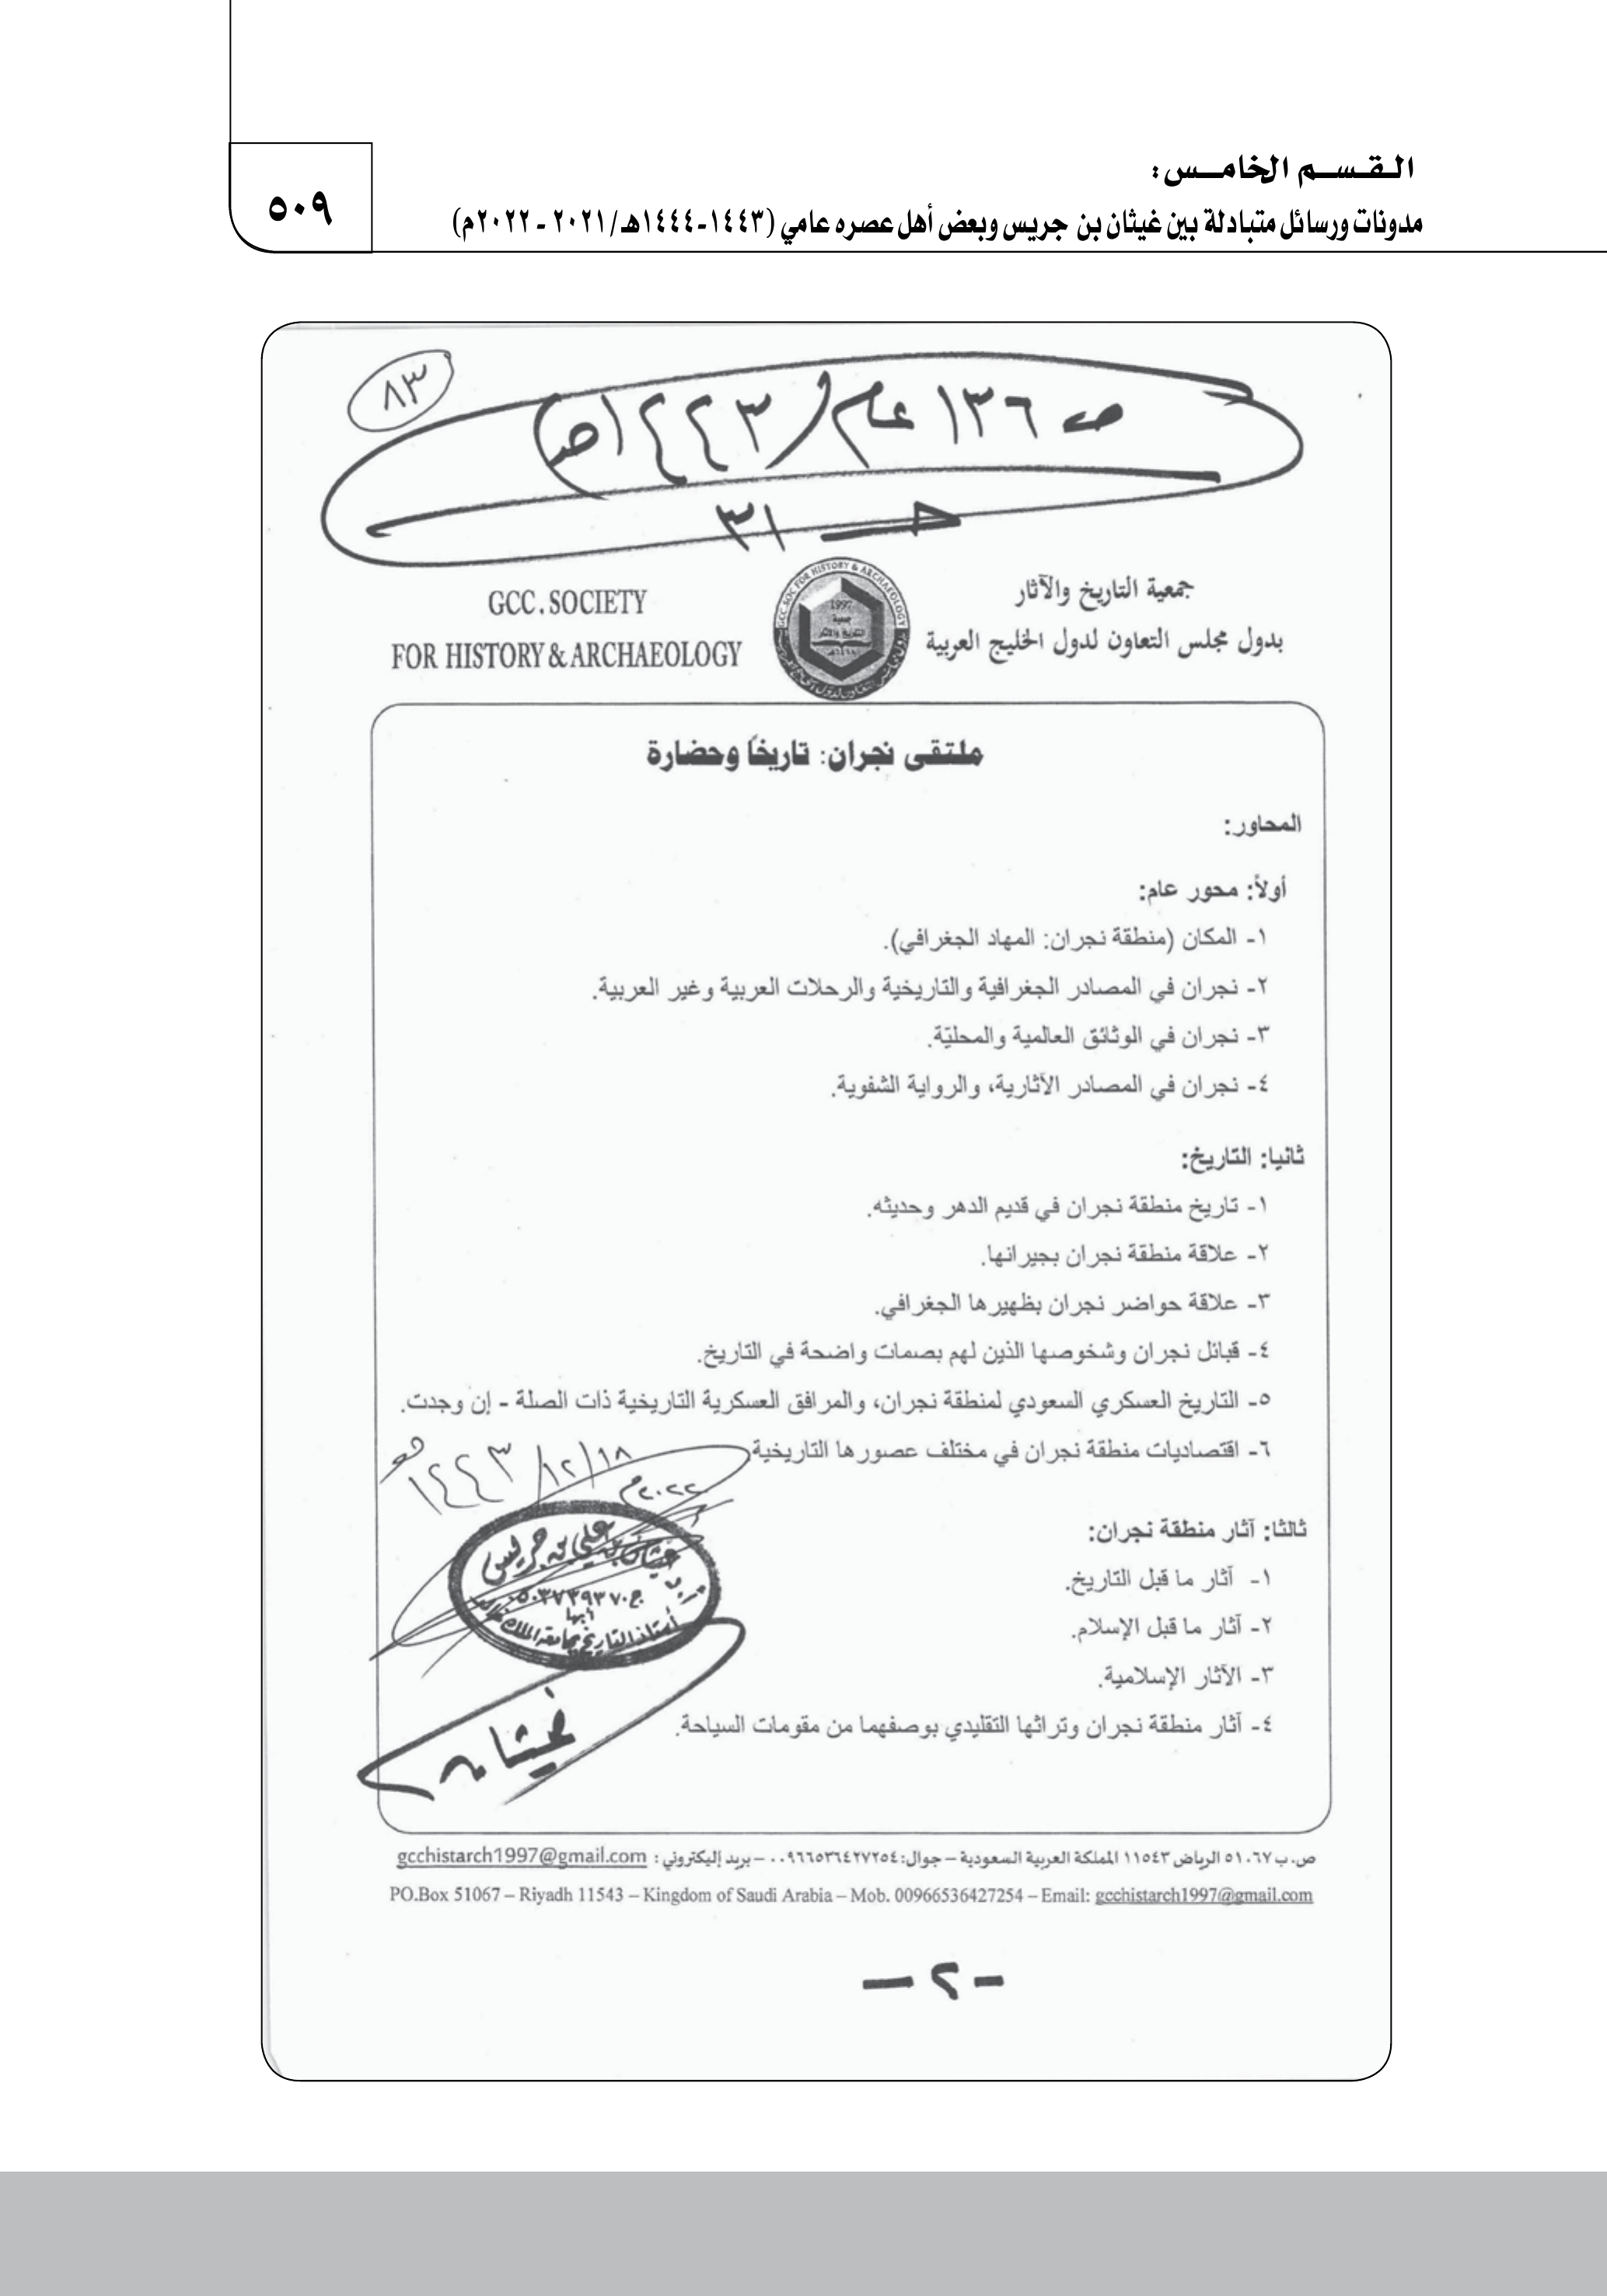 القسم الخامس:
مدونات ورسائل متبادلة بين غيثان بن جريس وبعض أهل عصره عامي (١٤٤٣-١٤٤٤هـ/٢٠٢١ - ٢٠٢٢م)
٥٠٩
٨٣
ص ١٣٦ عام/ ١٤٤٣هـ
ج ٣١
جمعية التاريخ والآثار
بدول مجلس التعاون لدول الخليج العربية
GCC. SOCIETY
FOR HISTORY & ARCHAEOLOGY
GCC SOC FOR HISTORY & ARCHAEOLOGY
1997
ملتقى نجران: تاريخًا وحضارة
المحاور:
أولاً: محور عام:
١- المكان (منطقة نجران: المهاد الجغرافي).
٢- نجران في المصادر الجغرافية والتاريخية والرحلات العربية وغير العربية.
٣- نجران في الوثائق العالمية والمحليّة.
٤- نجران في المصادر الآثارية، والرواية الشفوية.
ثانيا: التاريخ:
١- تاريخ منطقة نجران في قديم الدهر وحديثه.
٢- علاقة منطقة نجران بجيرانها.
٣- علاقة حواضر نجران بظهيرها الجغرافي.
٤- قبائل نجران وشخوصها الذين لهم بصمات واضحة في التاريخ.
٥- التاريخ العسكري السعودي لمنطقة نجران، والمرافق العسكرية التاريخية ذات الصلة - إن وجدت.
٦- اقتصاديات منطقة نجران في مختلف عصورها التاريخية
١٨/١٢/١٤٤٣هـ
٢٠٢٢م
ثالثا: آثار منطقة نجران:
١- آثار ما قبل التاريخ.
٢- آثار ما قبل الإسلام.
٣- الآثار الإسلامية.
٤- آثار منطقة نجران وتراثها التقليدي بوصفهما من مقومات السياحة.
غيثان بن علي بن جريس
أبها
أستاذ التاريخ بجامعة الملك خالد
غيثان
ص.ب ٥١٠٦٧ الرياض ١١٥٤٣ المملكة العربية السعودية – جوال: ٠٠٩٦٦٥٣٦٤٢٧٢٥٤ – بريد إليكتروني : gcchistarch1997@gmail.com
PO.Box 51067 – Riyadh 11543 – Kingdom of Saudi Arabia – Mob. 00966536427254 – Email: gcchistarch1997@gmail.com
- ٢ -